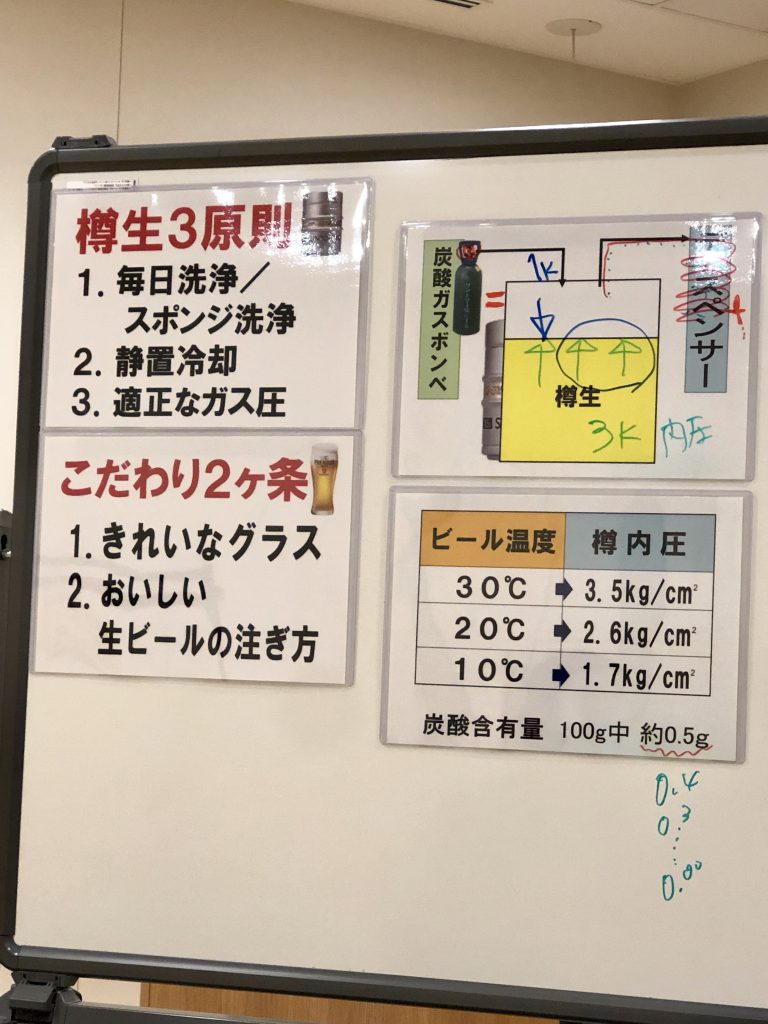 樽生3原則
1. 毎日洗浄／
スポンジ洗浄
2. 静置冷却
3. 適正なガス圧
こだわり2ヶ条
1. きれいなグラス
2. おいしい
生ビールの注ぎ方
炭酸ガスボンベ
1K
=
樽生
3K 内圧
スペンサー
ビール温度 樽内圧
30℃ 3.5kg/cm²
20℃ 2.6kg/cm²
10℃ 1.7kg/cm²
炭酸含有量 100g中 約0.5g
0.4
0.3
0.00